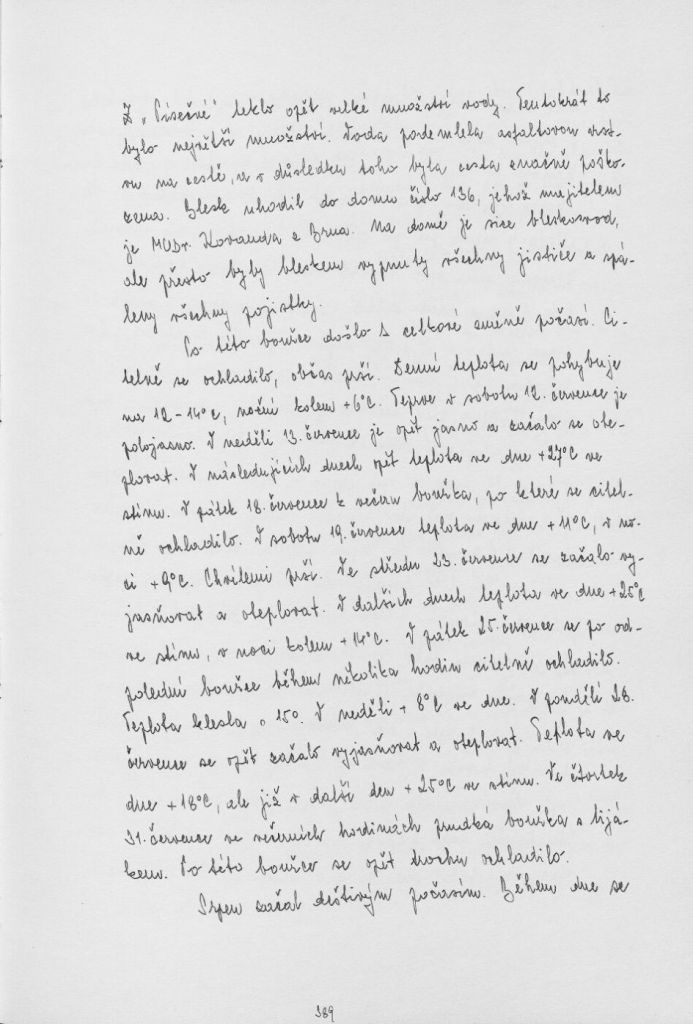 Z „Písečné" teklo opět velké množství vody. Tentokrát to
bylo největší množství. Voda podemlela asfaltovou vrst-
vu na cestě, a v důsledku toho byla cesta značně poško-
zena. Blesk uhodil do domu číslo 136, jehož majitelem
je MUDr. Koranda z Brna. Na domě je sice bleskosvod,
ale přesto byly bleskem vypnuty všechny jističe a spá-
leny všechny pojistky.
Po této bouřce došlo k celkové změně počasí. Ci-
telně se ochladilo, občas prší. Denní teplota se pohybuje
na 12-14°C, noční kolem +6°C. Teprve v sobotu 12. července je
polojasno. V neděli 13. července je opět jasno a začalo se ote-
plovat. V následujících dnech opět teplota ve dne +27°C ve
stínu. V pátek 18. července k večeru bouřka, po které se citel-
ně ochladilo. V sobotu 19. července teplota ve dne +11°C, v no-
ci +9°C. Chvílemi prší. Ve středu 23. července se začalo vy-
jasňovat a oteplovat. V dalších dnech teplota ve dne +25°C
ve stínu, v noci kolem +14°C. V pátek 25. července se po od-
polední bouřce během několika hodin citelně ochladilo.
Teplota klesla o 15°. V neděli + 8°C ve dne. V pondělí 28.
července se opět začalo vyjasňovat a oteplovat. Teplota ve
dne +18°C, ale již v další den +25°C ve stínu. Ve čtvrtek
31. července ve večerních hodinách prudká bouřka s lijá-
kem. Po této bouřce se opět trochu ochladilo.
Srpen začal deštivým počasím. Během dne se
389